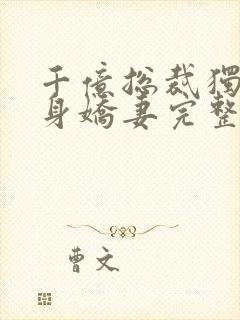 千億總裁獨
身嬌妻完整
曹文